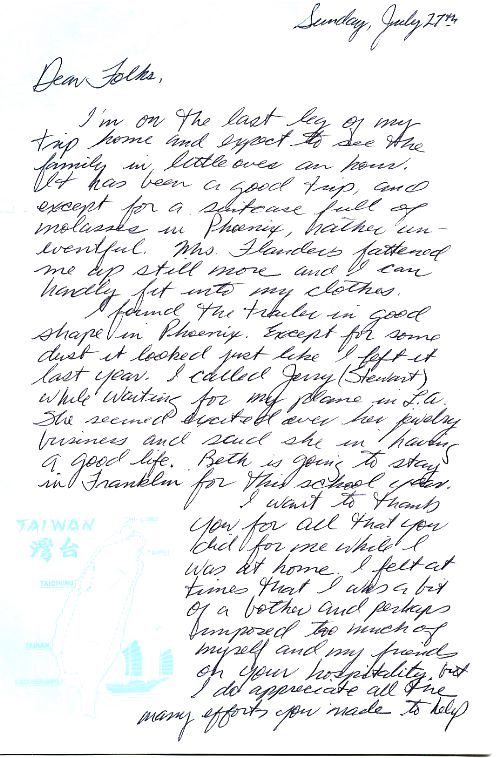 Sunday, July 27th
Dear Folks,
I'm on the last leg of my
trip home and expect to see the
family in little over an hour.
It has been a good trip, and
except for a suitcase full of
molasses in Phoenix, rather un-
eventful. Mrs. Flanders fattened
me up still more and I can
hardly fit into my clothes.
I found the trailer in good
shape in Phoenix. Except for some
dust it looked just like I left it
last year. I called Jerry (Stewart)
while waiting for my plane in L.A.
She seemed excited over her jewelry
business and said she in having
a good life. Beth is going to stay
in Franklin for this school year.
I want to thank
you for all that you
did for me while I
was at home. I felt at
times that I was a bit
of a bother and perhaps
imposed too much of
myself and my friends
on your hospitality, but
I do appreciate all the
many efforts you made to help
TAIWAN
灣台
TAICHUNG
TAINAN